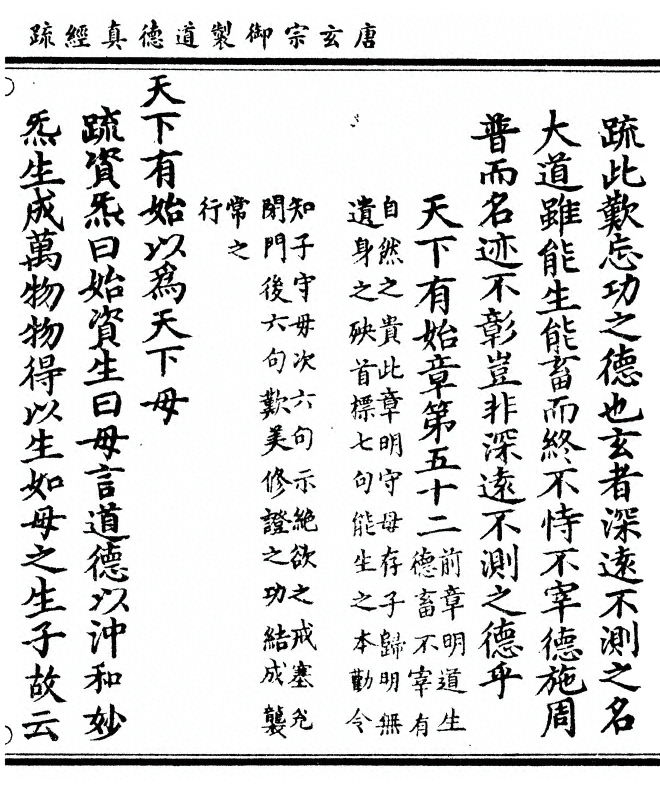 唐玄宗御製道德真經疏
疏此歎忘功之德也玄者深遠不測之名
大道雖能生能畜而終不恃不宰德施周
普而名迹不彰豈非深遠不測之德乎
天下有始章第五十二
前章明道生
德畜不宰有
自然之貴此章明守母存子歸明無
遺身之殃首標七句能生之本勤令
知子守母次六句示絶欲之戒塞兊
閉門後六句歎美修證之功結成襲
常之
行
天下有始以為天下母
疏資炁曰始資生曰母言道德以沖和妙
炁生成萬物物得以生如母之生子故云